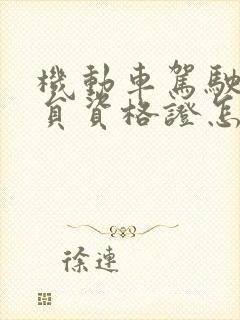 機動車駕駛
員資格證怎
徐連